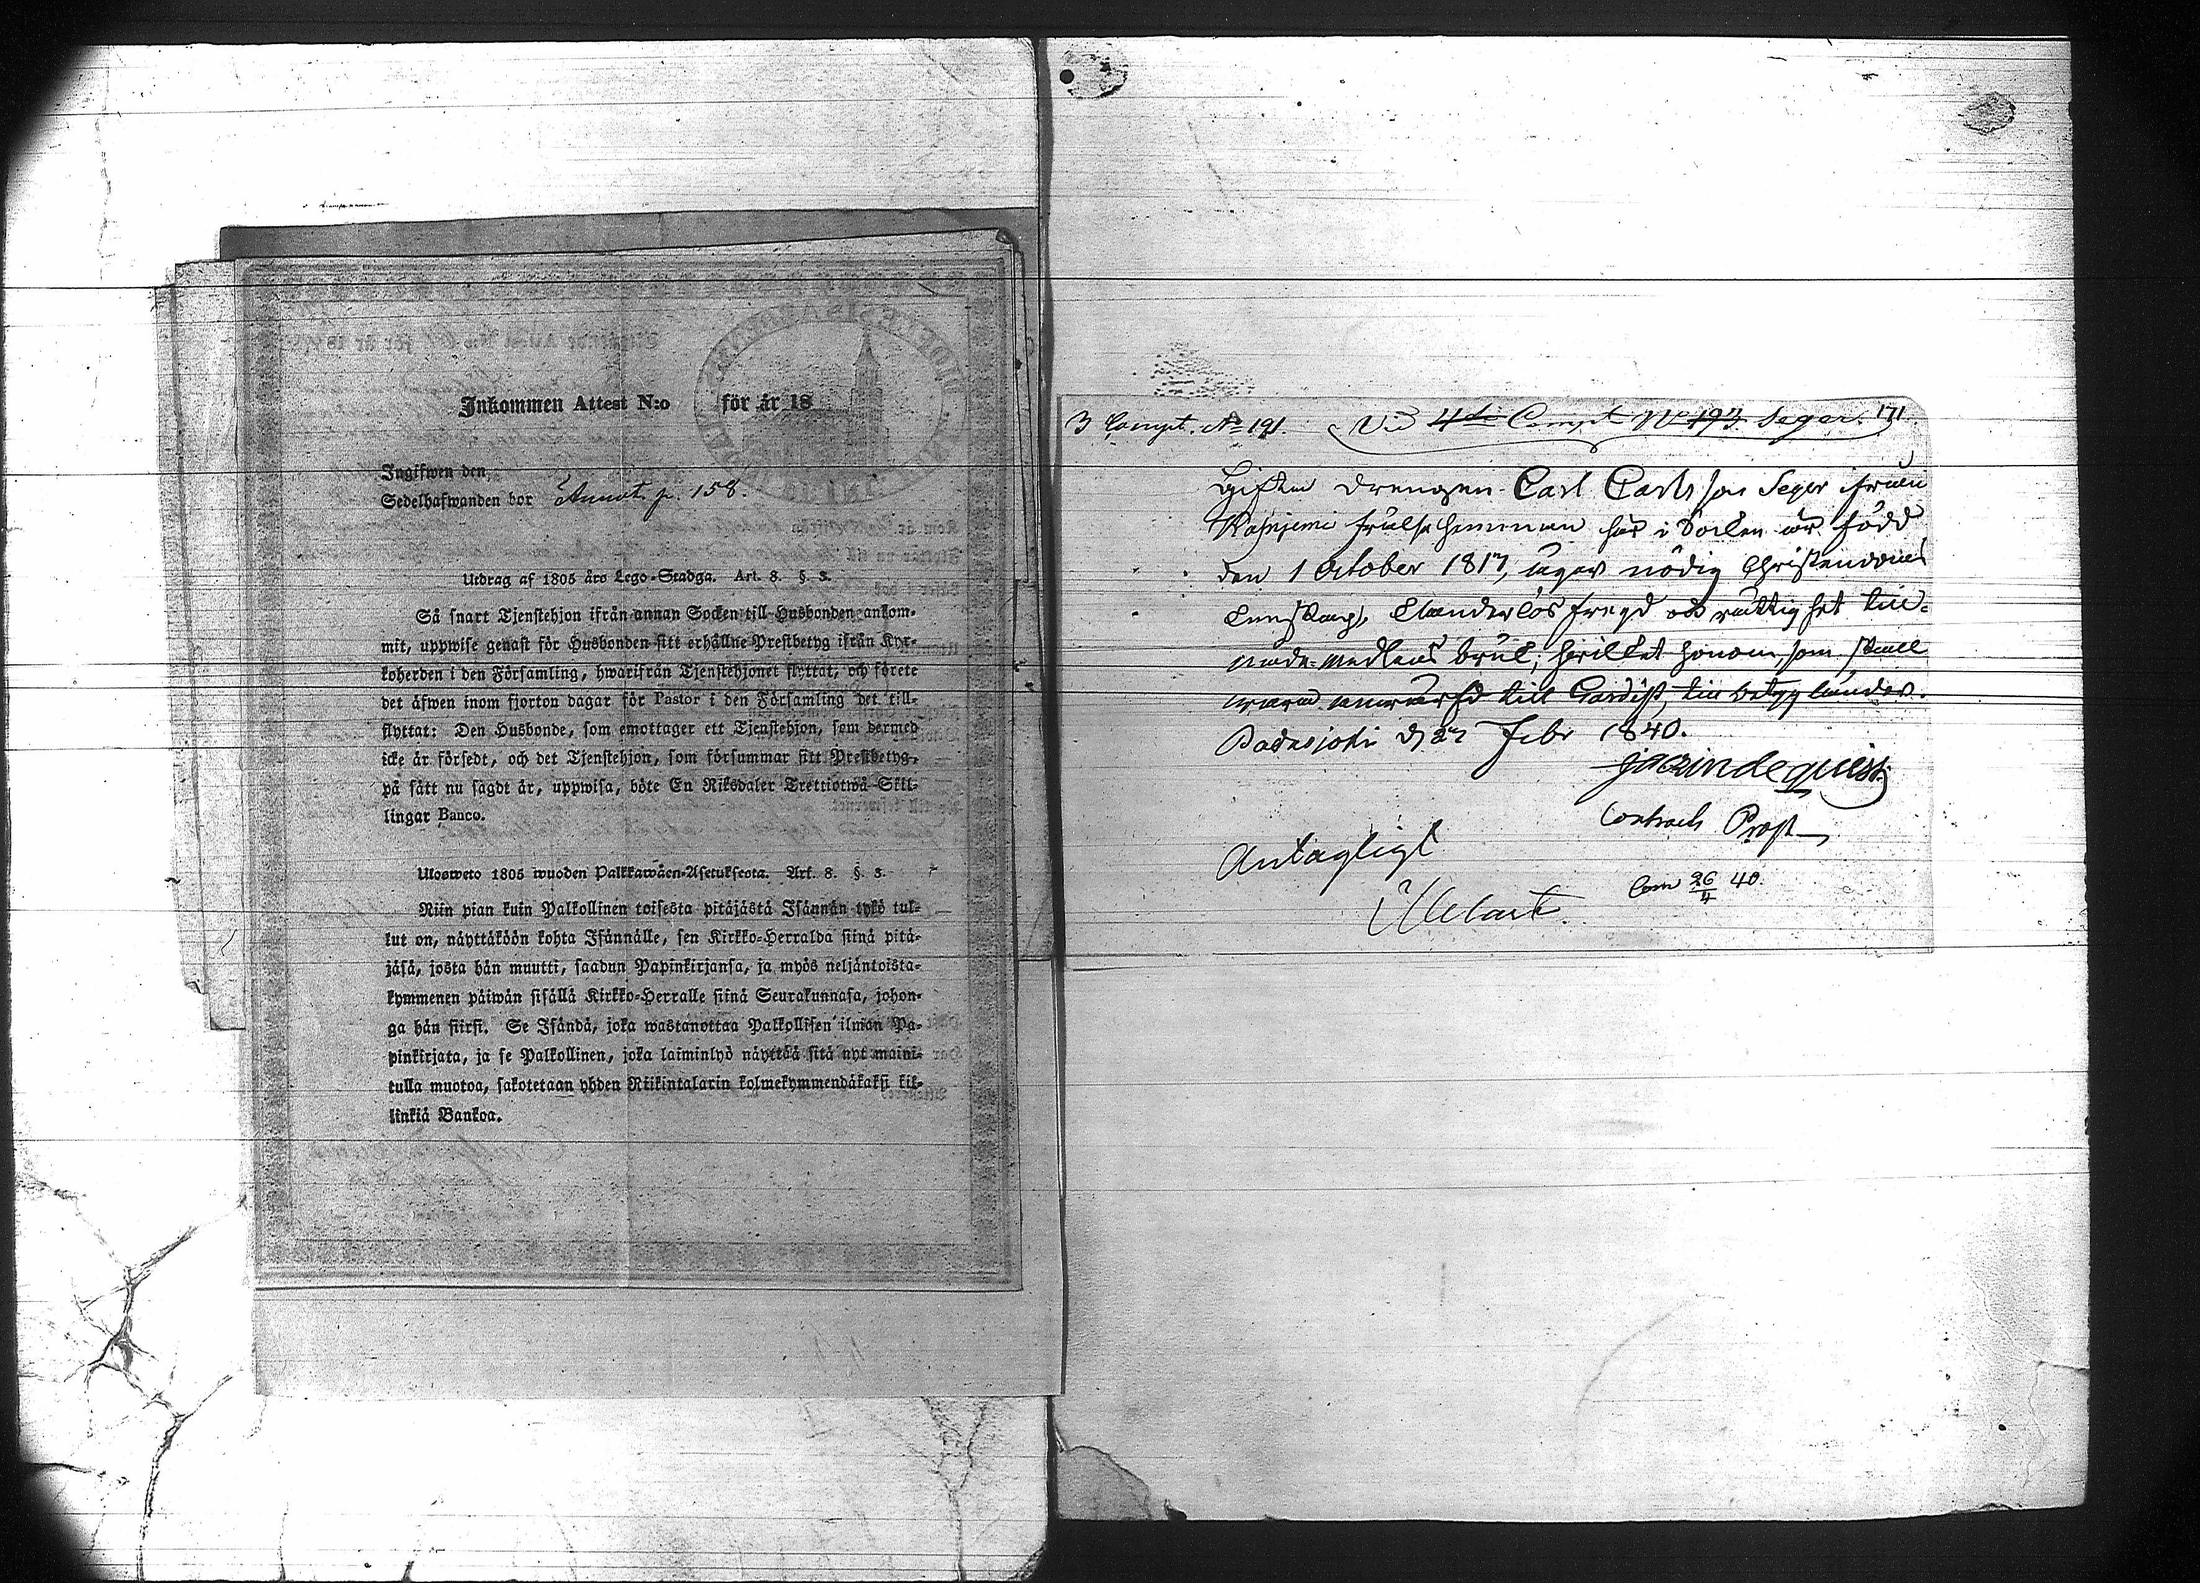 Inkommen Attest N:o för år 18
Ingifwen den
Sedelhafwanden bor Annot. p. 158.
Utdrag af 1805 års Lego-Stadga. Art. 8. §. 3.
Så snart Tjenstehjon ifrån annan Socken till Husbonden ankom-
mit, uppwise genast för Husbonden sitt erhållne Prestbetyg ifrån Kyr-
koherden i den Församling, hwarifrån Tjenstehjonet flyttat, och förete
det äfwen inom fjorton dagar för Pastor i den Församling det till-
flyttat: Den Husbonde, som emottager ett Tjenstehjon, som dermed
icke är försedt, och det Tjenstehjon, som försummar sitt Prestbetyg,
på sätt nu sagdt är, uppwisa, böte En Riksdaler Trettiotwå Skil-
lingar Banco.
Ulosweto 1805 wuoden Palkkawäen-Asetuksesta. Art. 8. §. 3.
Niin pian kuin Palkollinen toisesta pitäjästä Isännän tykö tul-
lut on, näyttäköön kohta Isännälle, sen Kirkko-Herralda siinä pitä-
jäsä, josta hän muutti, saadun Papinkirjansa, ja myös neljäntoista-
kymmenen päiwän sisällä Kirkko-Herralle siinä Seurakunnasa, johon-
ga hän siirsi. Se Isändä, joka wastanottaa Palkollisen ilman Pa-
pinkirjata, ja se Palkollinen, joka laiminlyö näyttää sitä nyt maini-
tulla muotoa, sakotetaan yhden Riikintalarin kolmekymmendäkaksi kil-
linkiä Bankoa.
3 Compt. No 191. Vid 4de Compt No 193 Seger. 171.
Gifte Drengen Carl Carlsson Seger ifrån
frälse hemman här i Socken är född
den 1 October 1817, äger nödig Christendoms
kunskap, Clanderlös fregd och rättighet till
nåde-medlens bruk, hvilket honom, som skall
wara anwärfd till Gardist, till betyg länder.
Padasjoki d 27 Febr 1840.
Contracts Prost
Antagligt
Com 26/4 40.